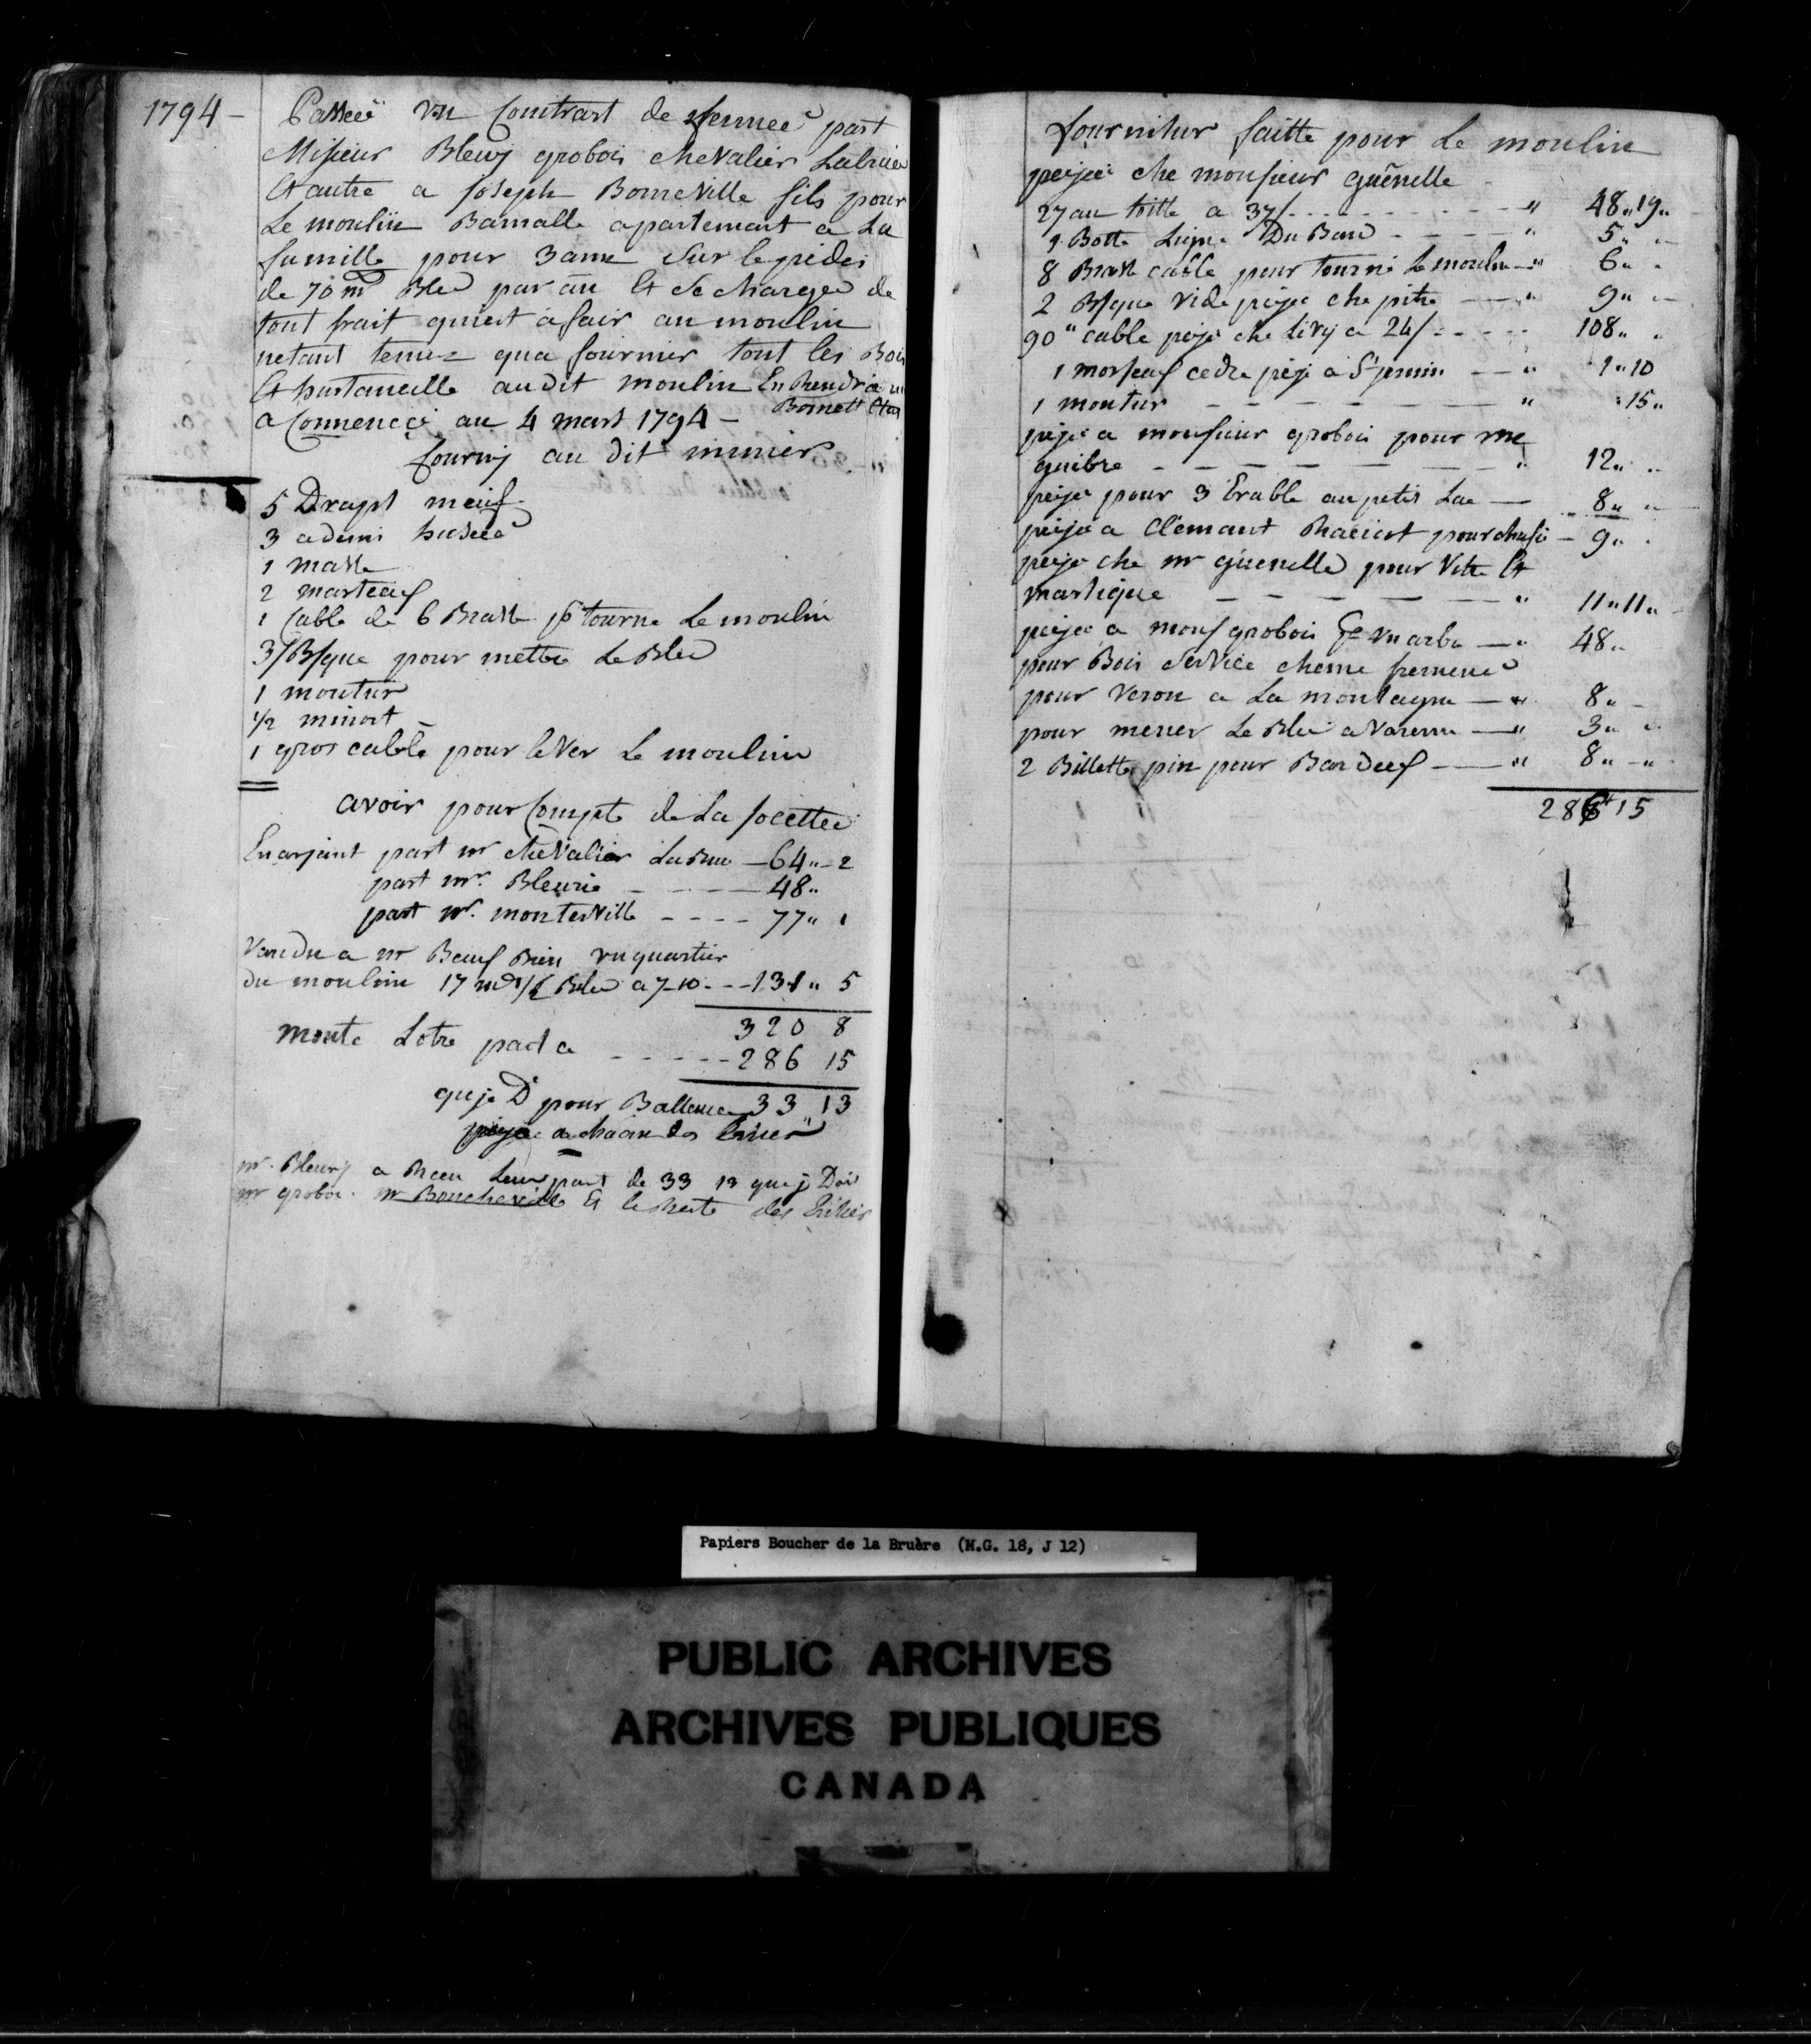 1794 -
Passeé un Contrast de fermeé part
Missieur Bleury grobois chevalier Labruere
Et autre a Joseph Bonneville fils pour
Le moulin Banalle apartenant a La
famille pour 3 anne Sur le piedes
de 70 mt Bled par an Et Se chargee de
tout frait quiest a fair au moulin
netant tenuz qua fournier tout les Bois
Et hustancille au dit moulin En Rendra un
Bonett Etat
a Commencé au 4 mart 1794 -
fourny au dit minier
5 Drapt neuf
3 a demi huseé
1 masse
2 marteauf
1 Cable de 6 Brasse pr tourne Le moulin
3/ Bsque pour mettre Le Bled
1 moutur
1/2 minot -
1 gros cable pour lever Le moulin
avoir pour Compte de La socettee
En arjant part mr chevalier Labrue - 64 " - 2
part mr. Bleurie - - - - 48 "
part mr. montarville - - - - 77 " 1
Vandu a mr Beauf Bien un quartier
du moulin 17 mt 1/2 Bled a 7-10 - - - 131 " 5
320 8
Monte Lotre part a - - - - - 286 15
que je D pour Ballence 33 " 13
peyé a chacun des
mr. Bleury a Receu Leur part de 33 13 que j Dois
mr grobois mr Boucherville Et le Reste des Eritier
fournitur faitte pour Le moulin
peyee che monsieur guenelle
27 au toille a 37/ - - - - - - - " 48 " 19 "
1 Botte Ligne Du Bare - - - - " 5 " "
8 Brasse cable pour tourné Le moulin - " 6 " "
2 Bsque vide peyée che pitre - - " 9 " "
90 " cable peyé che Levy a 24/ - - - - 108 " "
1 morseauf cedre peyé a St jermin - - " 1 " 10
1 moutur - - - - - - - " " 15 "
peyée a monsieur grobois pour me
guibre - - - - - - - " 12 " "
peyée pour 3 Erable au petit Lac - 8 " "
peyée a Clemant Racicot pour chasi - 9 " "
peyé che mr guenelle pour Vitre Et
mastique - - - - - - " 11 " 11 "
peyée a monsf grobois pr un arbre - " 48 "
pour Bois Service chenne fremene
pour Veron a La montagne - " 8 " -
pour mener Le Bled a Varenne - " 3 " "
2 Billotte pin pour Bardeuf - " 8 " - "
286 15
Papiers Boucher de la Bruère (M.G. 18, J 12)
PUBLIC ARCHIVES
ARCHIVES PUBLIQUES
CANADA